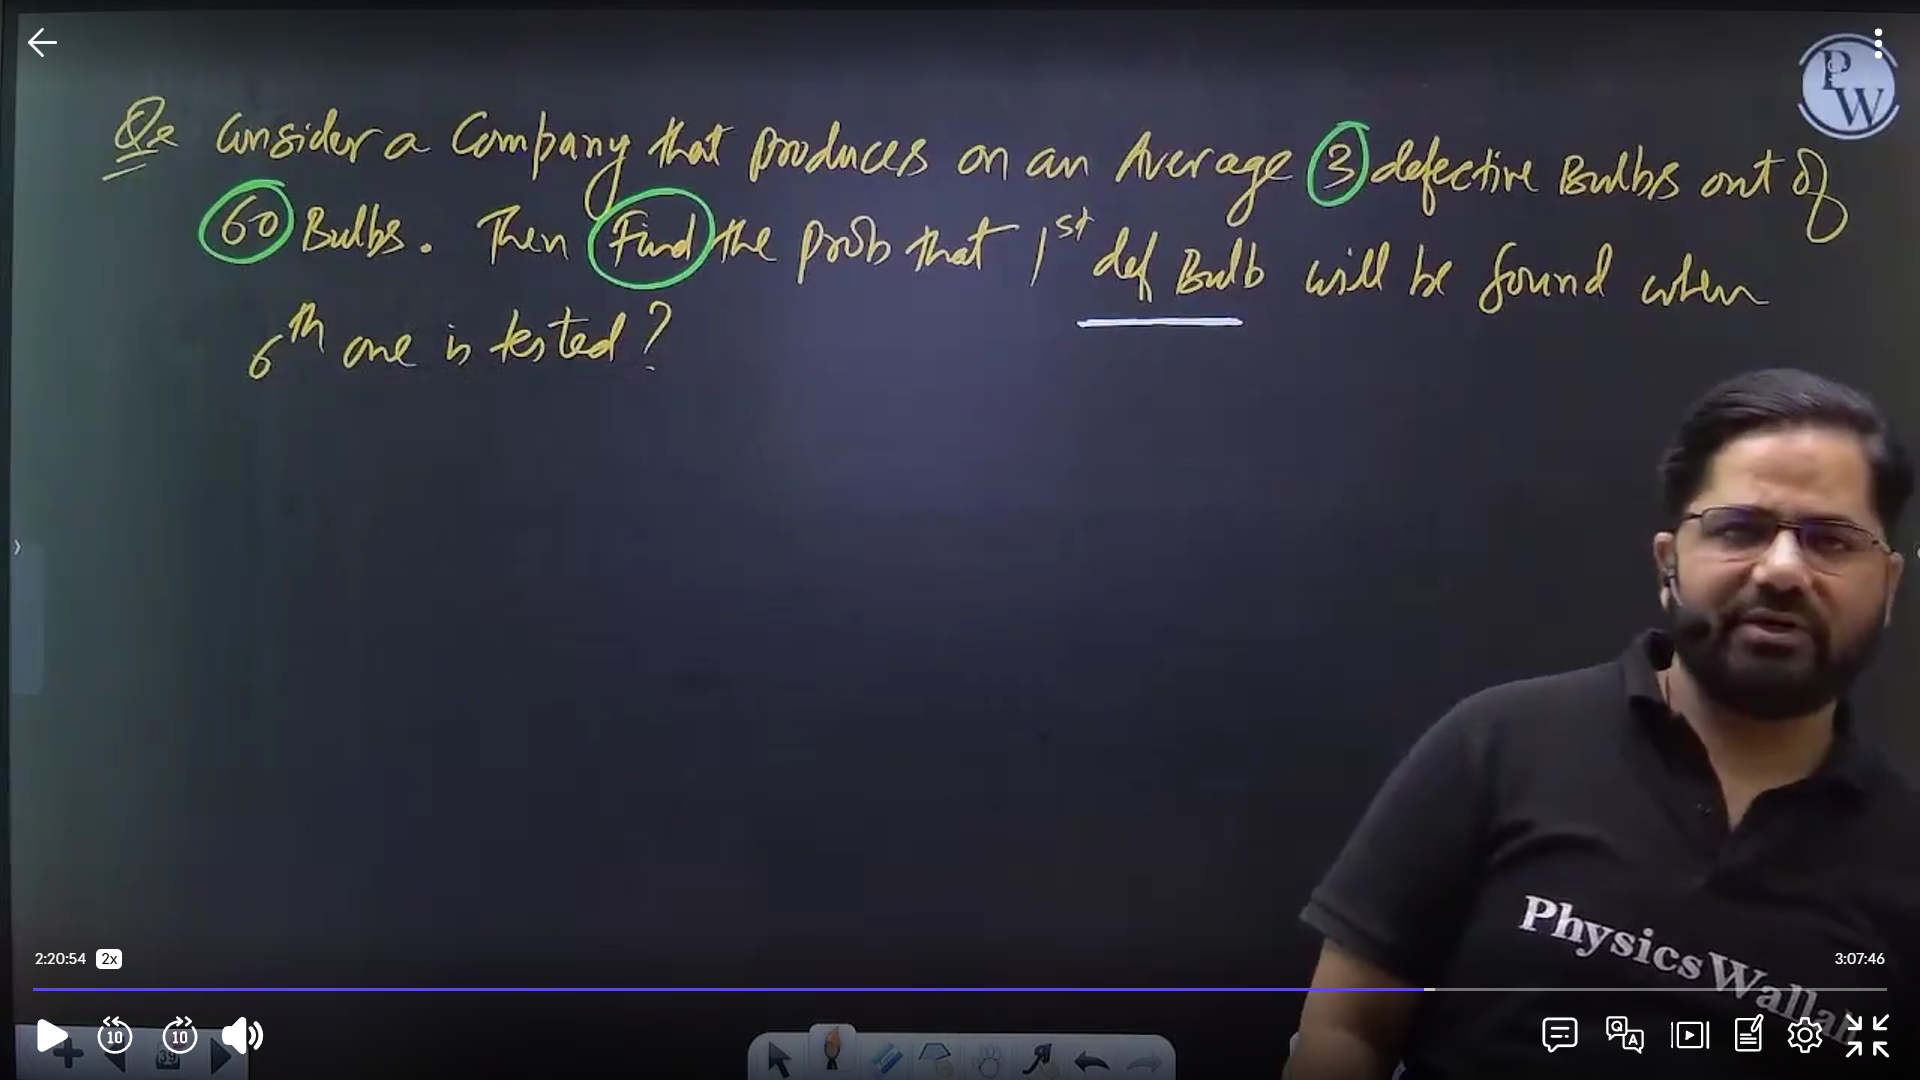 PW
Qs Consider a Company that produces on an Average 3 defective Bulbs out of
60 Bulbs. Then Find the prob that 1st def Bulb will be found when
6th one is tested?
Physics Walla
2:20:54 2x 3:07:46
10 10
39
Q A